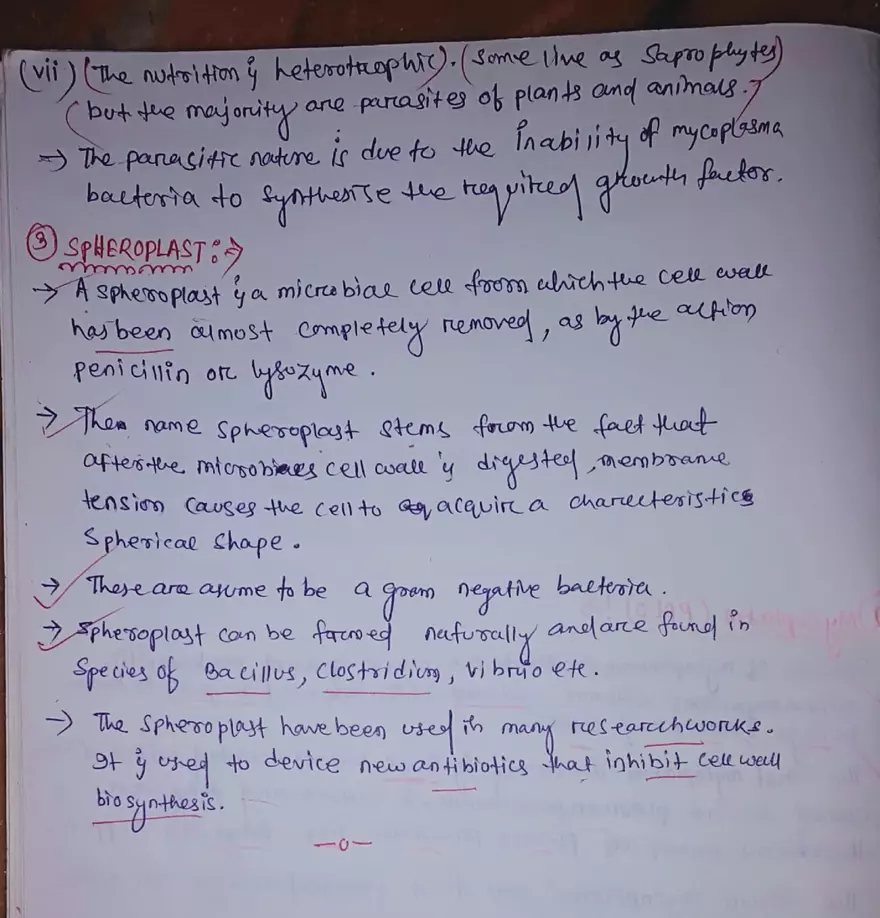 (vii) (The nutrition is heterotrophic). (some live as Saprophytes)
(but the majority are parasites of plants and animals.)
=> The parasitic nature is due to the inability of mycoplasma
bacteria to synthesise the required growth factor.
③ SPHEROPLAST:->
-> A spheroplast is a microbial cell from which the cell wall
has been almost completely removed, as by the action
penicillin or lysozyme.
-> The name spheroplast stems from the fact that
after the microbes cell wall is digested, membrane
tension causes the cell to acquire a charecteristics
Spherical shape.
-> These are asume to be a gram negative bacteria.
-> Spheroplast can be formed naturally and are found in
Species of Bacillus, Clostridium, Vibrio etc.
-> The Spheroplast have been used in many research works.
It is used to device new antibiotics that inhibit cell wall
biosynthesis.
—o—